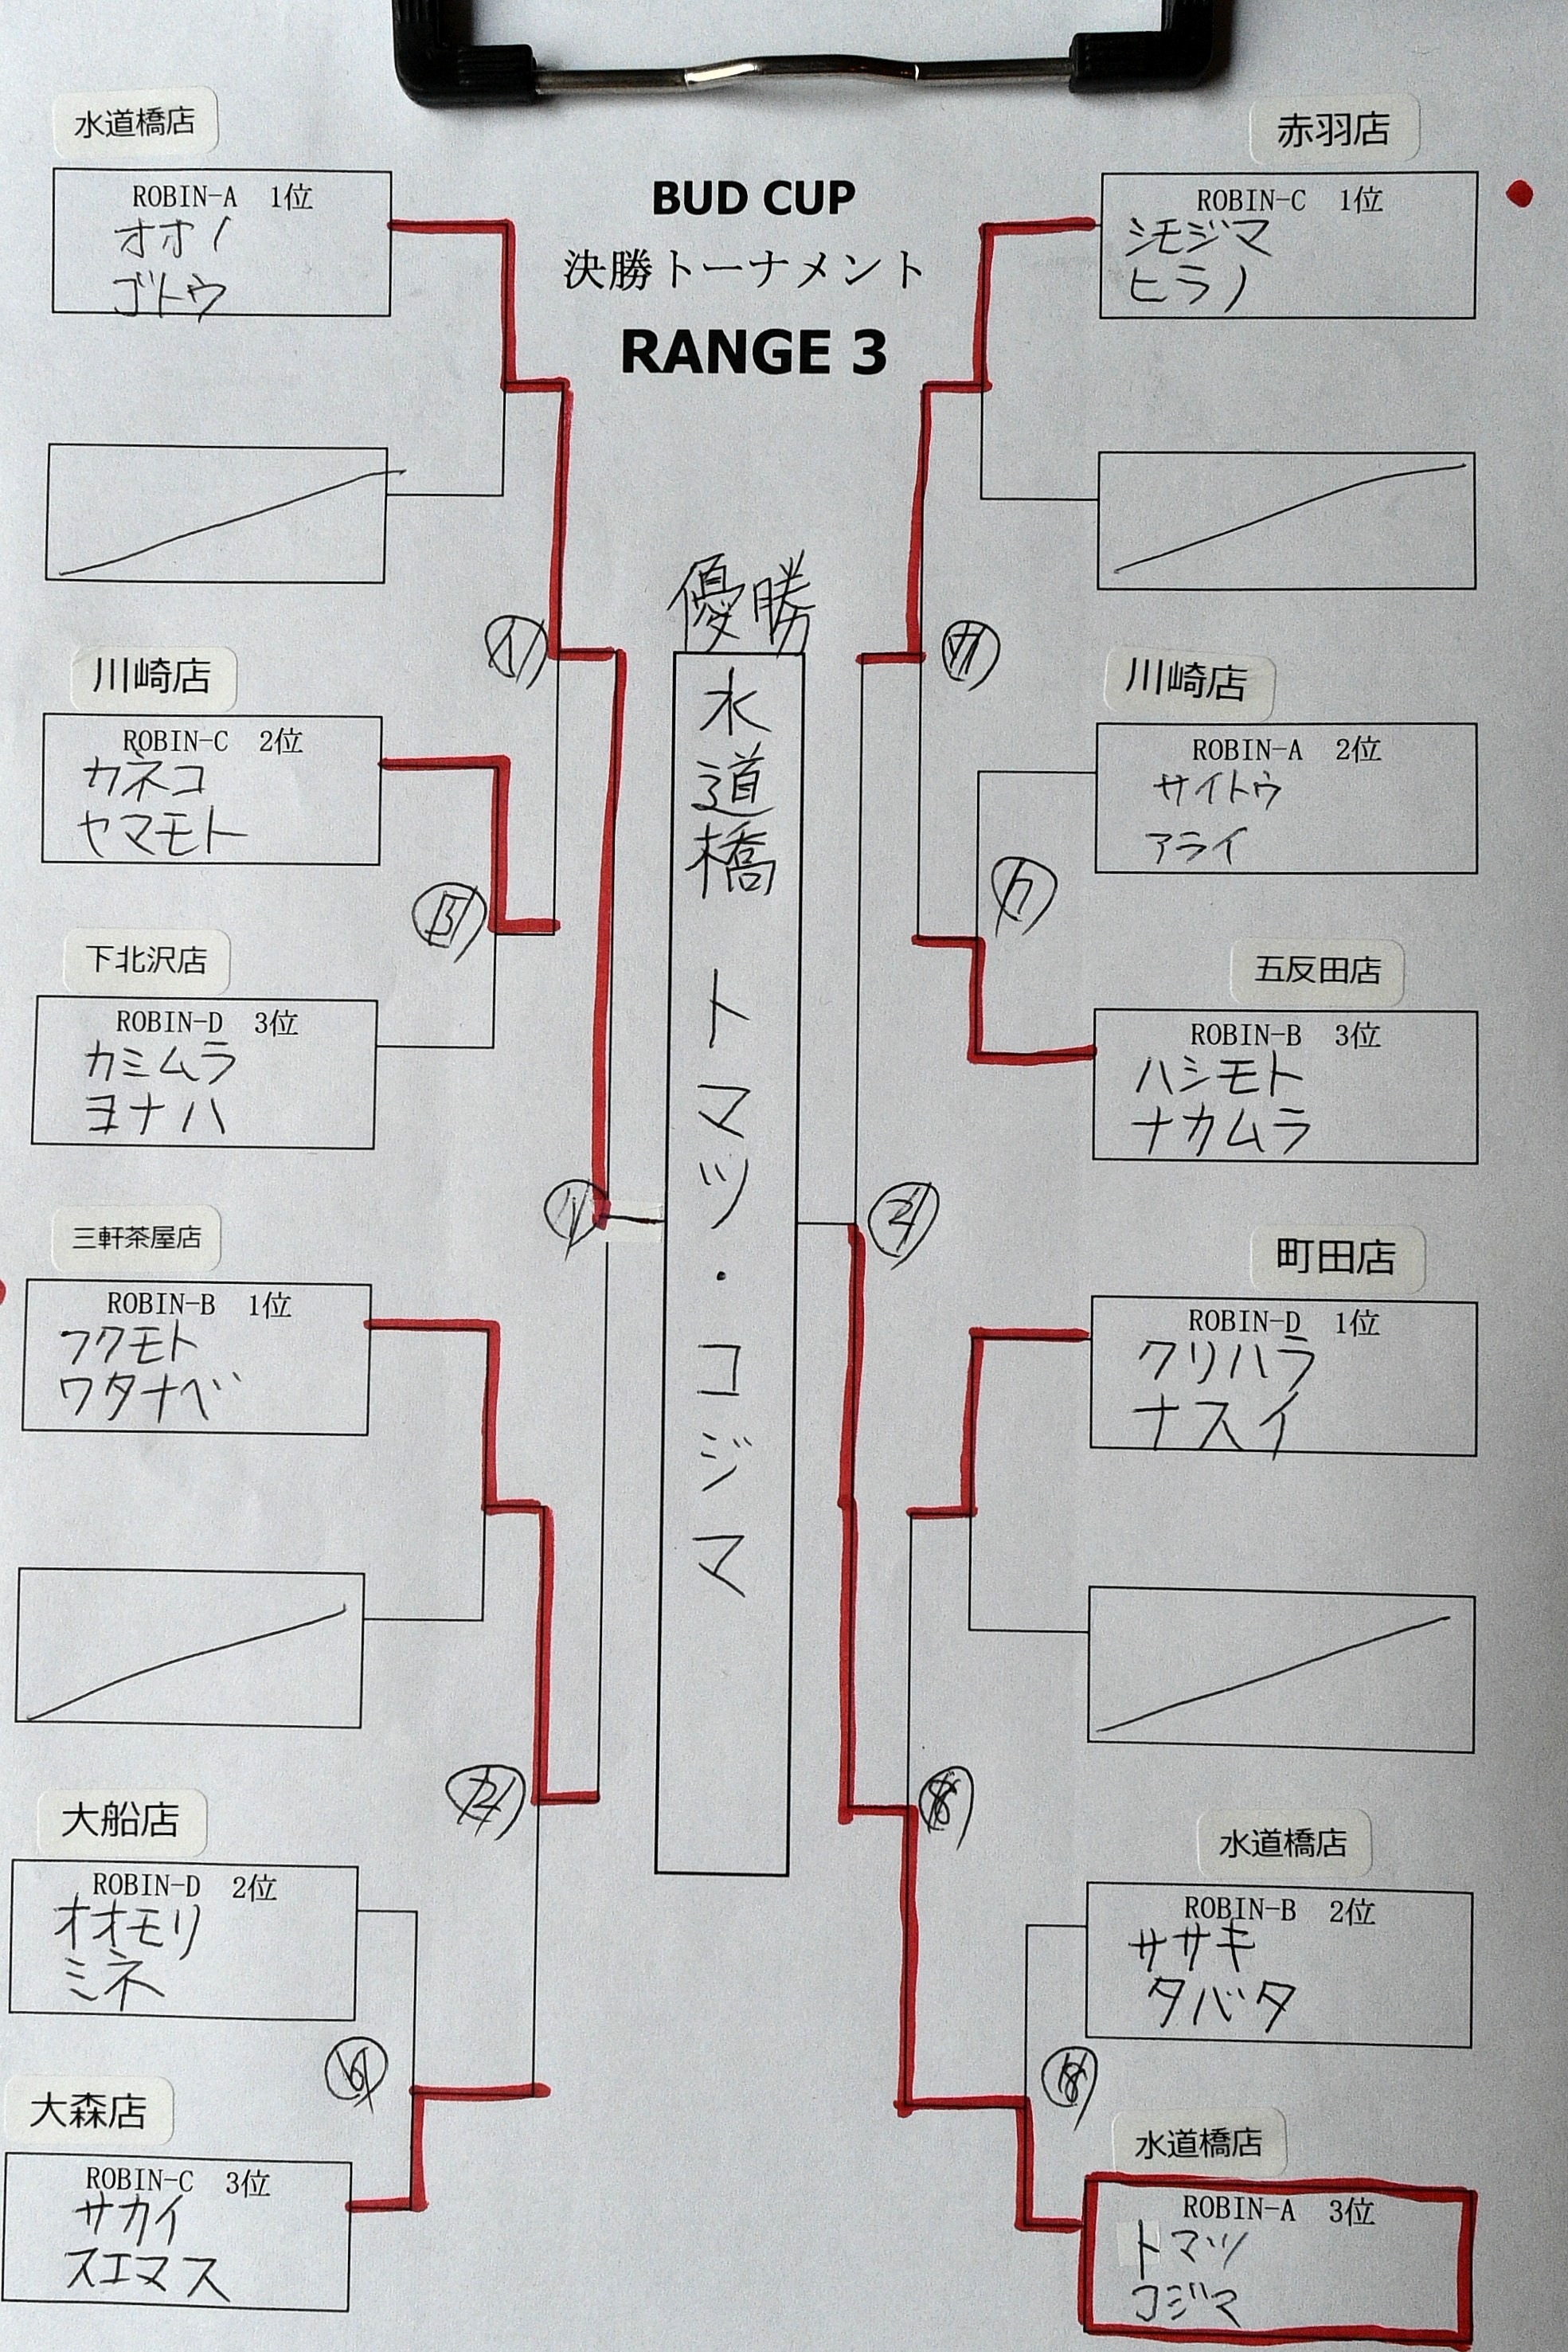 BUD CUP
決勝トーナメント
RANGE 3
水道橋店
ROBIN-A 1位
オオノ
ゴトウ
川崎店
ROBIN-C 2位
カネコ
ヤマモト
下北沢店
ROBIN-D 3位
カミムラ
ヨナハ
三軒茶屋店
ROBIN-B 1位
フクモト
ワタナベ
大船店
ROBIN-D 2位
オオモリ
ミネ
大森店
ROBIN-C 3位
サカイ
スエマス
優勝
水道橋 トマツ・コジマ
赤羽店
ROBIN-C 1位
シモジマ
ヒラノ
川崎店
ROBIN-A 2位
サイトウ
アライ
五反田店
ROBIN-B 3位
ハシモト
ナカムラ
町田店
ROBIN-D 1位
クリハラ
ナスイ
水道橋店
ROBIN-B 2位
ササキ
タバタ
水道橋店
ROBIN-A 3位
トマツ
コジマ